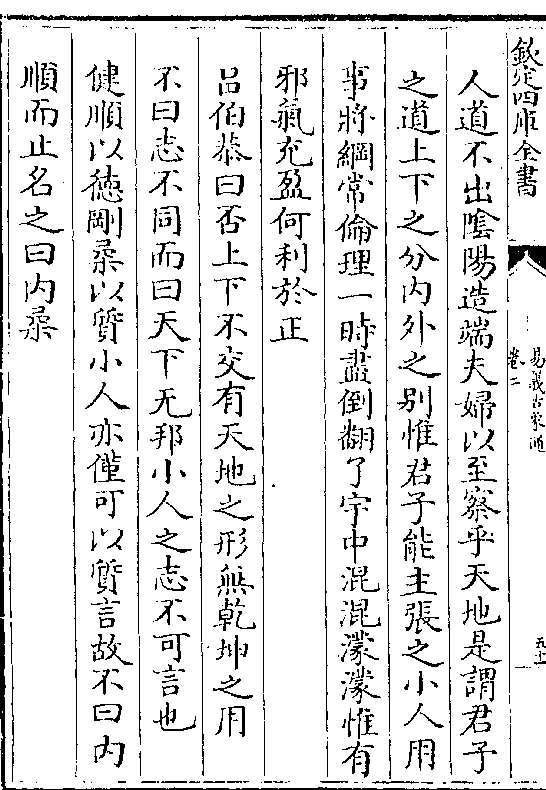 欽定四庫全書
易義古象通
卷二
五十
人道不出隂陽造端夫婦以至察乎天地是謂君子
之道上下之分内外之别惟君子能主張之小人用
事將綱常倫理一時盡倒翻了宇中混混濛濛惟有
邪氣充盈何利於正
吕伯恭曰否上下不交有天地之形無乾坤之用
不曰志不同而曰天下无邦小人之志不可言也
健順以徳剛柔以質小人亦僅可以質言故不曰内
順而止名之曰内柔